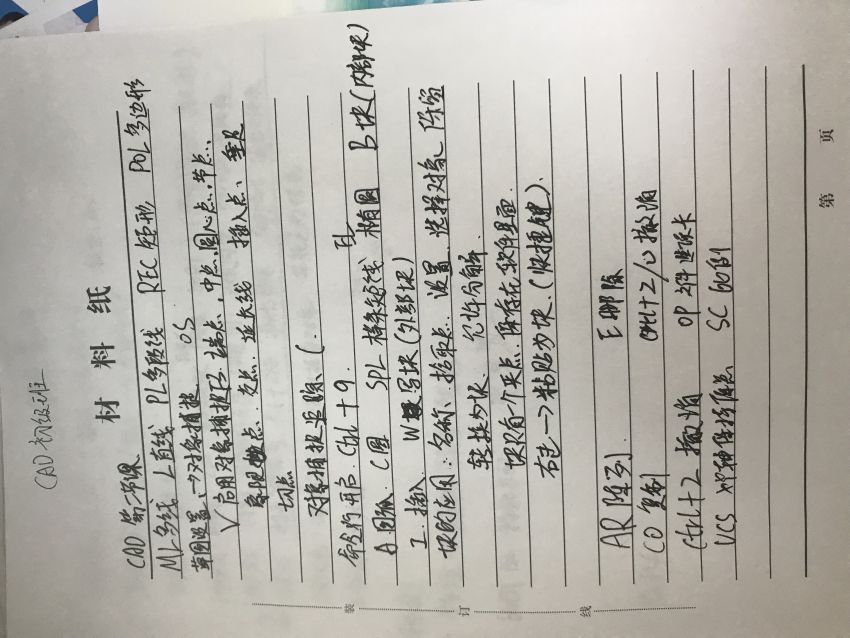 CAD 初级班
材料纸
CAD 第二节课
ML多线 L直线 PL多段线 REC 矩形 POL 多边形
草图设置→对象捕捉 OS
√启用对象捕捉F3 端点、中点、圆心点、节点、
象限点 交点、延长线 插入点、垂足
切点
对象捕捉追踪、(
命令行开启 Ctrl + 9 EL
A 圆弧 C圆 SPL 样条曲线 椭圆 B块(内部块)
I 插入 W 写块(外部块)
块的应用:名称、拾取点、设置、选择对象
转换为块 允许分解
块只有一个夹点 软件里面.
右击→粘贴为块.(快捷键).
AR阵列. E删除
CO 复制 Ctrl+Z/U 撤消
Ctrl+Z 撤消 OP 选项卡
UCS 坐标 SC
装 订 线
第 页